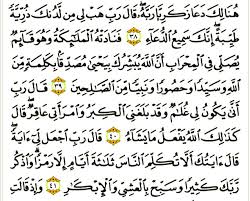 هُنَالِكَ دَعَا زَكَرِيَّا رَبَّهُۥ قَالَ رَبِّ هَبْ لِى مِن لَّدُنكَ ذُرِّيَّةً
طَيِّبَةً إِنَّكَ سَمِيعُ ٱلدُّعَآءِ ٣٨ فَنَادَتْهُ ٱلْمَلَٰٓئِكَةُ وَهُوَ قَآئِمٌ
يُصَلِّى فِى ٱلْمِحْرَابِ أَنَّ ٱللَّهَ يُبَشِّرُكَ بِيَحْيَىٰ مُصَدِّقًۢا بِكَلِمَةٍ مِّنَ
ٱللَّهِ وَسَيِّدًا وَحَصُورًا وَنَبِيًّا مِّنَ ٱلصَّٰلِحِينَ ٣٩ قَالَ رَبِّ
أَنَّىٰ يَكُونُ لِى غُلَٰمٌ وَقَدْ بَلَغَنِىَ ٱلْكِبَرُ وَٱمْرَأَتِى عَاقِرٌ قَالَ
كَذَٰلِكَ ٱللَّهُ يَفْعَلُ مَا يَشَآءُ ٤٠ قَالَ رَبِّ ٱجْعَل لِّىٓ ءَايَةً
قَالَ ءَايَتُكَ أَلَّا تُكَلِّمَ ٱلنَّاسَ ثَلَٰثَةَ أَيَّامٍ إِلَّا رَمْزًا وَٱذْكُر
رَّبَّكَ كَثِيرًا وَسَبِّحْ بِٱلْعَشِىِّ وَٱلْإِبْكَٰرِ ٤١ وَإِذْ قَالَتِ